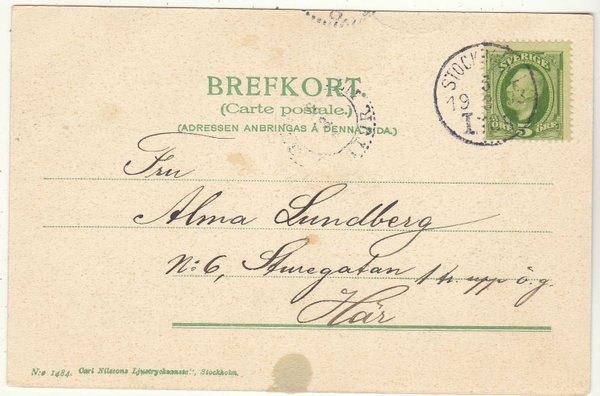 BREFKORT.
(Carte postale.)
(ADRESSEN ANBRINGAS Å DENNA SIDA.)
SVERIGE
5
ÖRE
STOCK
19
Fru
Alma Lundberg
N:6, Sturegatan 1 tr. upp ö. g.
Här
N:o 1484. Carl Nilssons Ljustrycksanst., Stockholm.